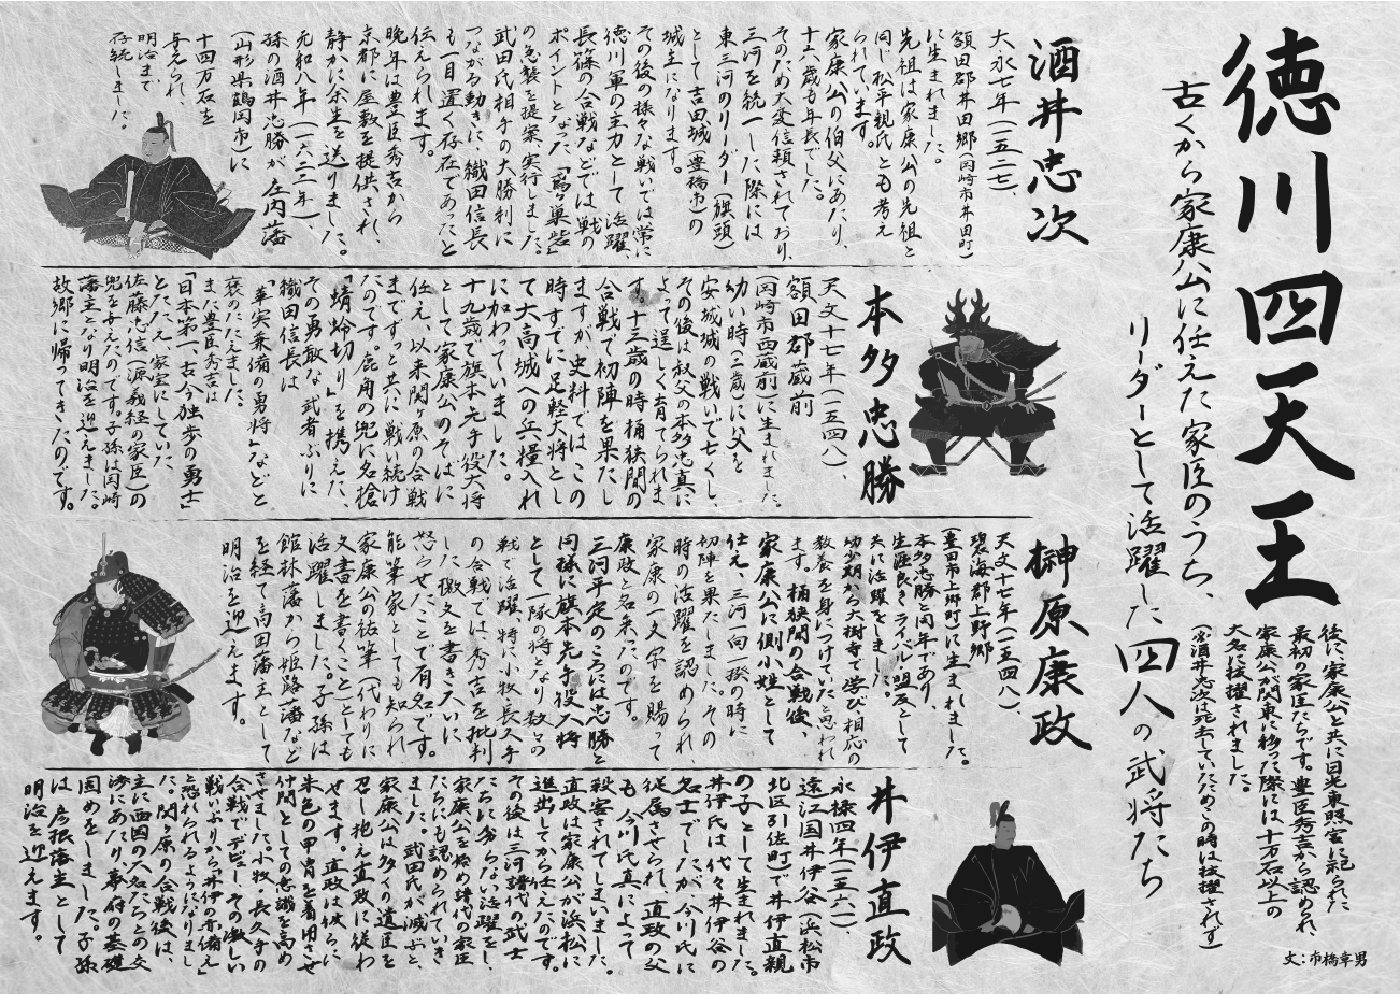 徳川四天王
古くから家康公に仕えた家臣のうち、
リーダーとして活躍した四人の武将たち
後に家康公と共に日光東照宮に祀られた
最初の家臣たちです。豊臣秀吉から認められ、
家康公が関東に移った際には十万石以上の
大名に抜擢されました。
(※酒井忠次は死去していたためこの時は抜擢されず)
文:市橋章男
酒井忠次
大永七年(一五二七)、
額田郡井田郷(岡崎市井田町)
に生まれました。
先祖は家康公の先祖と
同じ松平親氏とも考え
られています。
家康公の伯父にあたり、
十六歳も年長でした。
そのため大変信頼されており、
三河を統一した際には
東三河のリーダー(旗頭)
として吉田城(豊橋市)の
城主になります。
その後の様々な戦いでは常に
徳川軍の主力として活躍、
長篠の合戦などでは、戦の
ポイントとなった「鳶ヶ巣砦」
の急襲を提案、実行しました。
武田氏相手の大勝利に
つながる動きに、織田信長
も一目置く存在であったと
伝えられます。
晩年は豊臣秀吉から
京都に屋敷を提供され、
静かに余生を送りました。
元和八年(一六二二年)、
孫の酒井忠勝が、庄内藩
(山形県鶴岡市)に
十四万石を
与えられ、
明治まで
存続しました。
本多忠勝
天文十七年(一五四八)、
額田郡蔵前
(岡崎市西蔵前)に生まれました。
幼い時(二歳)に父を
安城城の戦いで亡くし、
その後は叔父の本多忠真に
よって逞しく育てられま
す。十三歳の時桶狭間の
合戦で初陣を果たし
ますが、史料ではこの
時すでに足軽大将とし
て大高城への兵糧入れ
に加わっていました。
十九歳で旗本先手役大将
として家康公のそばに
仕え、以来関ヶ原の合戦
までずっと共に戦い続け
たのです。鹿角の兜に名槍
「蜻蛉切り」を携えた、
その勇敢な武者ぶりに
織田信長は
「華実兼備の勇将」などと
褒めたたえました。
また豊臣秀吉は
「日本第一、古今独歩の勇士」
とたたえ、家宝にしていた
佐藤忠信(源義経の家臣)の
兜を与えたのです。子孫は岡崎
藩主となり明治を迎えました。
故郷に帰ってきたのです。
榊原康政
天文十七年(一五四八)、
碧海郡上野郷
(豊田市上郷町)に生まれました。
本多忠勝と同年であり、
生涯良きライバル・盟友として
共に活躍をしました。
幼少期から大樹寺で学び相応の
教養を身につけていたと思われ
ます。桶狭間の合戦後、
家康公に側小姓として
仕え、三河一向一揆の時に
初陣を果たしました。その
時の活躍を認められ、
家康の一文字を賜って
康政と名乗ったのです。
三河平定のころには忠勝と
同様に旗本先手役大将
として一隊の将となり数々の
戦で活躍、特に小牧・長久手
の合戦では、秀吉を批判
した檄文を書き大いに
怒らせたことで有名です。
能筆家としても知られ、
家康公の祐筆(代わりに
文書を書くこと)としても
活躍しました。子孫は
館林藩から姫路藩など
を経て高田藩主として
明治を迎えます。
井伊直政
永禄四年(一五六一)、
遠江国井伊谷(浜松市
北区引佐町)で井伊直親
の子として生まれました。
井伊氏は代々井伊谷の
名士でしたが、今川氏に
従属させられ、直政の父
も、今川氏真によって
殺害されてしまいました。
直政は家康公が浜松に
進出してから仕えたのです。
その後は三河譜代の武士
たちに劣らない活躍をし、
家康公を始め譜代の家臣
たちにも認められていき
ました。武田氏が滅ぶと、
家康公は多くの遺臣を
召し抱え直政に従わ
せます。直政は彼らに
朱色の甲冑を着用させ
仲間としての意識を高め
させました。小牧・長久手の
合戦でデビュー、その激しい
戦いぶりから「井伊の赤備え」
と恐れられるようになりまし
た。関ヶ原の合戦後は、
主に西国の大名たちとの交
渉にあたり、幕府の基礎
固めをしました。子孫
は彦根藩主として
明治を迎えます。